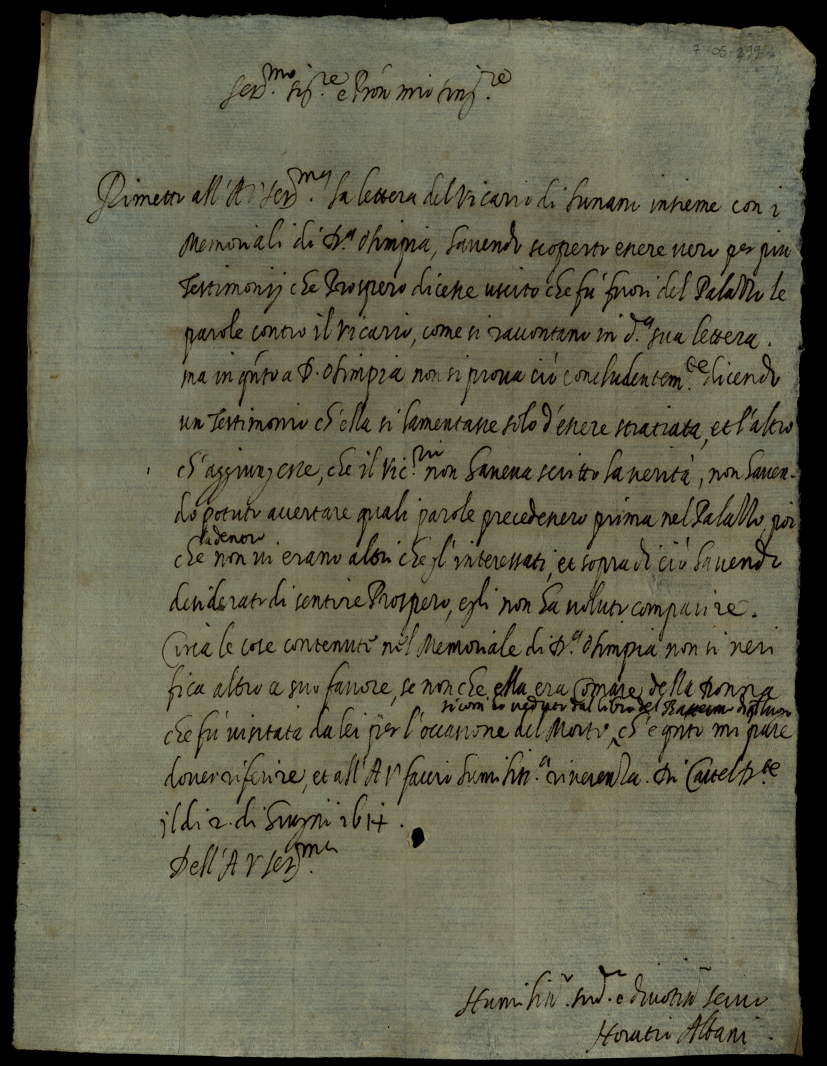 Ser.mo Sig.re e P'ron mio Sing.re
Rimetto all'A V Ser.ma la lettera del Vicario di Lunano insieme con i
Memoriali di D.a Olimpia, havendo scoperto essere vero per più
Testimonij che Prospero dicesse uscito che fù fuori del Palazzo le
parole contro il Vicario, come si raccontano in d.a sua lettera.
ma in q'nto a D. Olimpia non si prova ciò concludentem.te dicendo
un Testimonio ch'ella si lamentasse solo d'essere stratiata, et l'altro
ch'aggiungesse, che il Vic.rio non haveva scritto la verità, non haven-
do potuto accertare quali parole precedenero prima nel Palazzo, poi
che non vi erano altri che gl'interessati, et sopra di ciò havendo
desiderato di sentire Prospero, egli non ha voluto comparire.
Circa le cose contenute nel Memoriale di D.a Olimpia non si veri
fica altro a suo favore, se non che ella era Comare della Donna
si com' ho veduto dal libro del
che fù visitata da lei per l'occasione del Morto, ch'è q'nto mi pare
dover riferire, et all'A V faccio humiliss.a riverenza. Di Casteld.te
il di 2. di Giugno 1614.
Dell'A V Ser.ma
Humiliss. e divotiss. servo
Horatio Albani